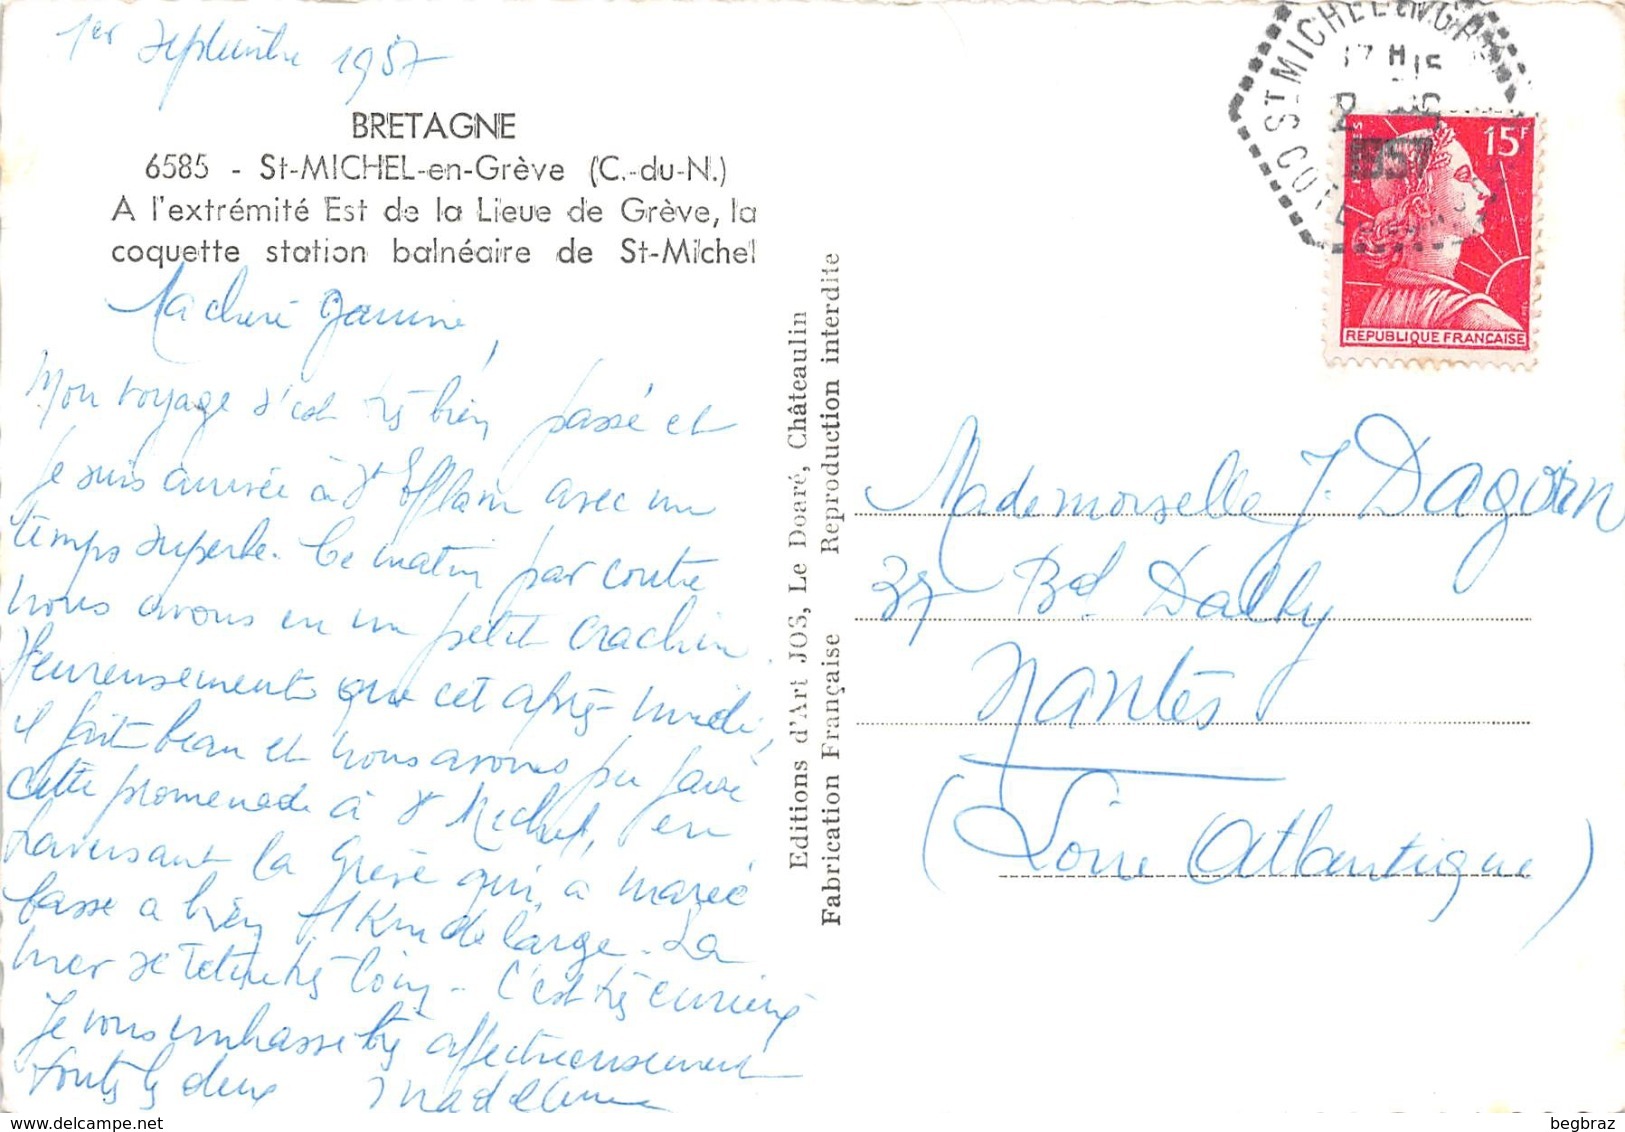 1er septembre 1957
BRETAGNE
6585 - St-MICHEL-en-Grève (C.-du-N.)
A l'extrémité Est de la Lieue de Grève, la
coquette station balnéaire de St-Michel
Ma chère Janine,
Mon voyage s'est très bien passé et
je suis arrivée à St Efflam avec un
temps superbe. Ce matin par contre
nous avons eu un petit crachin.
Heureusement que cet après-midi,
il fait beau et nous avons pu faire
cette promenade à St Michel, en
traversant la grève qui, à marée
basse a bien 1 Km de large. La
mer se retire très loin. C'est très curieux
Je vous embrasse très affectueusement
toutes les deux Madeleine
Editions d'Art JOS, Le Doaré, Châteaulin
Fabrication Française Reproduction interdite
ST MICHEL EN GRÈVE
17 H 15
2 - 9
1957
COTES
15F
REPUBLIQUE FRANÇAISE
Mademoiselle J. Dagorn
37 Bd Dalby
Nantes
(Loire Atlantique)
begbraz